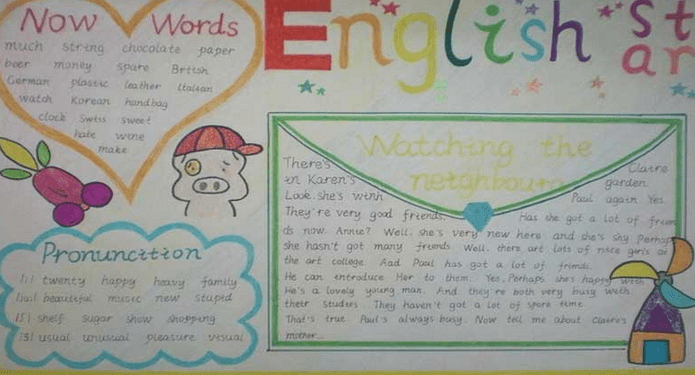 Now Words
much string chocolate paper
beer money spare British
German plastic leather Italian
watch Korean handbag
clock Swiss sweet
hate wine
make
English star
Pronunction
/i/ twenty happy heavy family
/ju:/ beautiful music new stupid
/ʃ/ shelf sugar show shopping
/ʒ/ usual unusual pleasure visual
Watching the
neighbours
There's Claire
in Karen's garden.
Look. she's with Paul again Yes.
They're very good friends. Has she got a lot of frien
ds now. Annie? Well. she's very new here and she's shy Perhap
she hasn't got many friends Well. there are lots of nice girls at
the art college. And Paul has got a lot of friends.
He can introduce Her to them. Yes. Perhaps she's happy with
He's a lovely young man. And they're both very busy with
their Studies. They haven't got a lot of spare time
That's true. Paul's always busy. Now tell me about Claire's
mother...